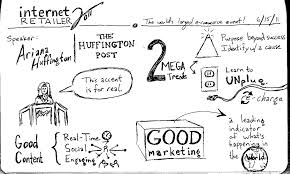 internet
RETAILER 2011
The world's largest e-commerce event!
6/15/11
Speaker-
Ariana
Huffington
THE
HUFFINGTON
POST
This accent
is for real.
2 MEGA
Trends
Purpose beyond success
Identify w/ a cause
Learn to
UNplug
-charge
Good
Content
Real-Time
Social
Engaging
GOOD
marketing
a leading
indicator
of what's
happening in
the World